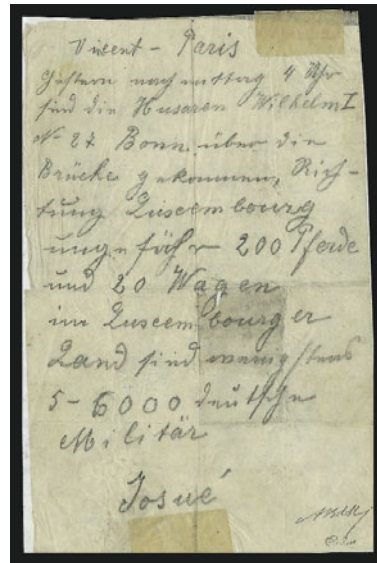 Vincent - Paris
Gestern nachmittag 4 Uhr
sind die Husaren Wilhelm I
N° 27 Bonn über die
Brücke gekommen, Rich-
tung Luxembourg
ungefähr 200 Pferde
und 20 Wagen
im Luxembourger
Land sind wenigstens
5-6000 deutsche
Militär
Josué